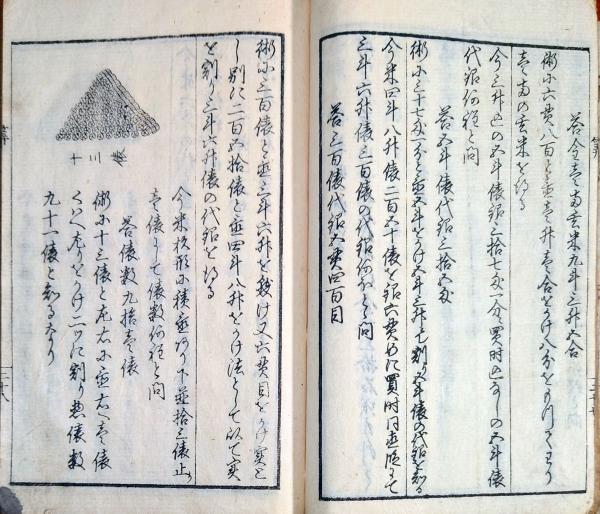 答金壱両玄米九斗三升五合
術に六貫八百と置壱升壱合をかけ八分をもつてわり
壱両の玄米を得る
今三升込の五斗俵銀三拾七匁一分買時込なしの五斗俵
代銀何程と問
答五斗俵代銀三拾五匁
術に三十七匁一分と置五斗をかけ五斗三升にて割り五斗俵の代銀を知る
今米四斗八升俵二百五十俵を銀六貫めに買時同直段にて
三斗六升俵三百俵の代銀何ほどと問
答三百俵代銀五貫四百目
術に三百俵と置三斗六升を数け又六貫目をかけ実と
し別に二百五拾俵と置四斗八升をかけ法として以て実
を割り三斗六升俵の代銀を得る
今米杉形に積置あり下並拾三俵止り
壱俵にして俵数何程と問
答俵数九拾壱俵
術に十三俵と左右に置右へ壱俵
くはへ左りをかけ二つに割り惣俵数
九十一俵と知るなり
十三俵